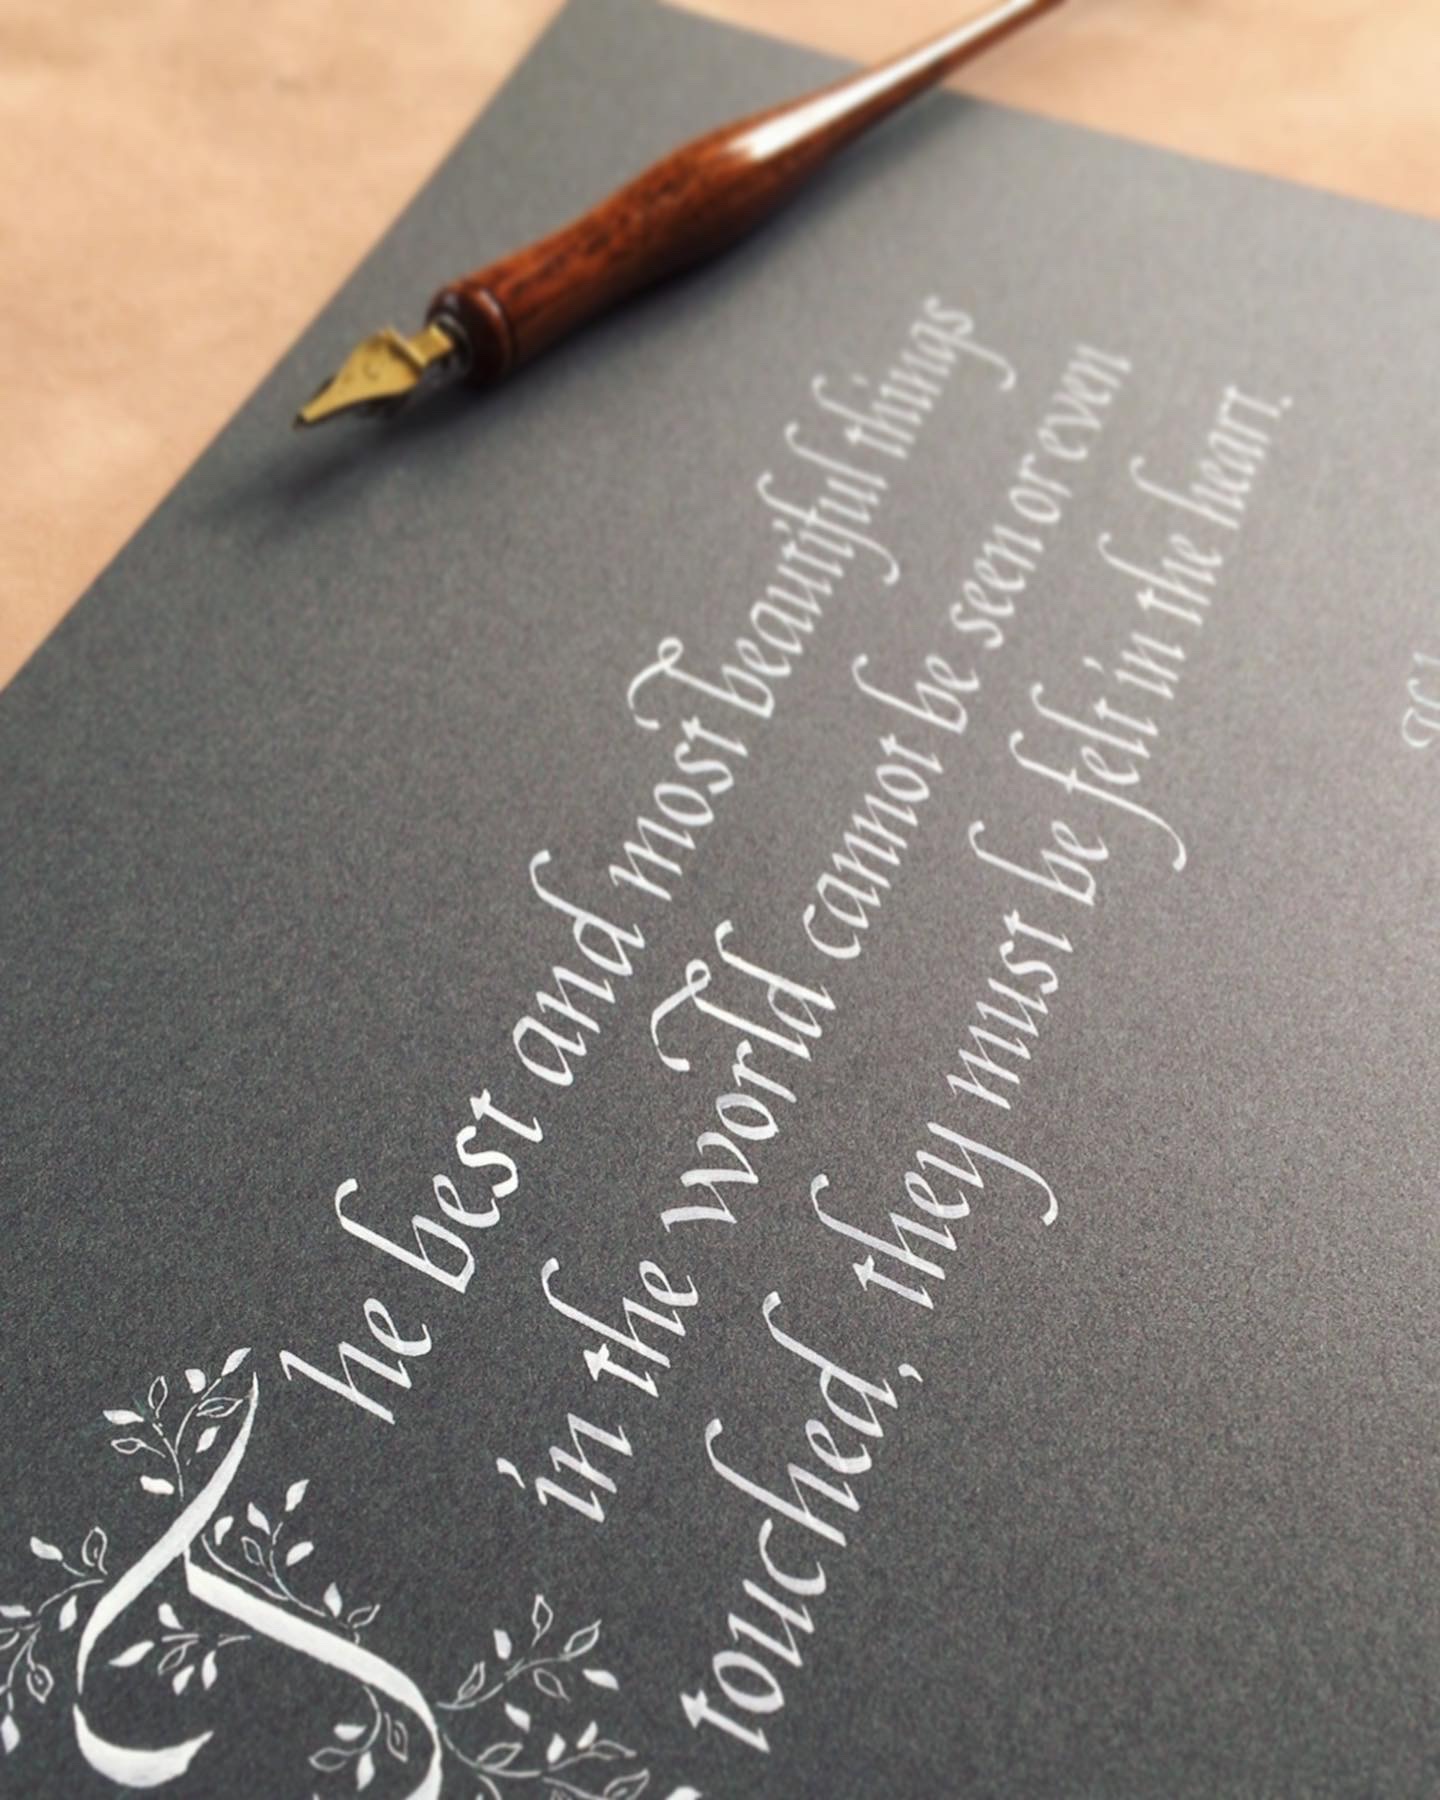 The best and most beautiful things
in the world cannot be seen or even
touched, they must be felt in the heart.